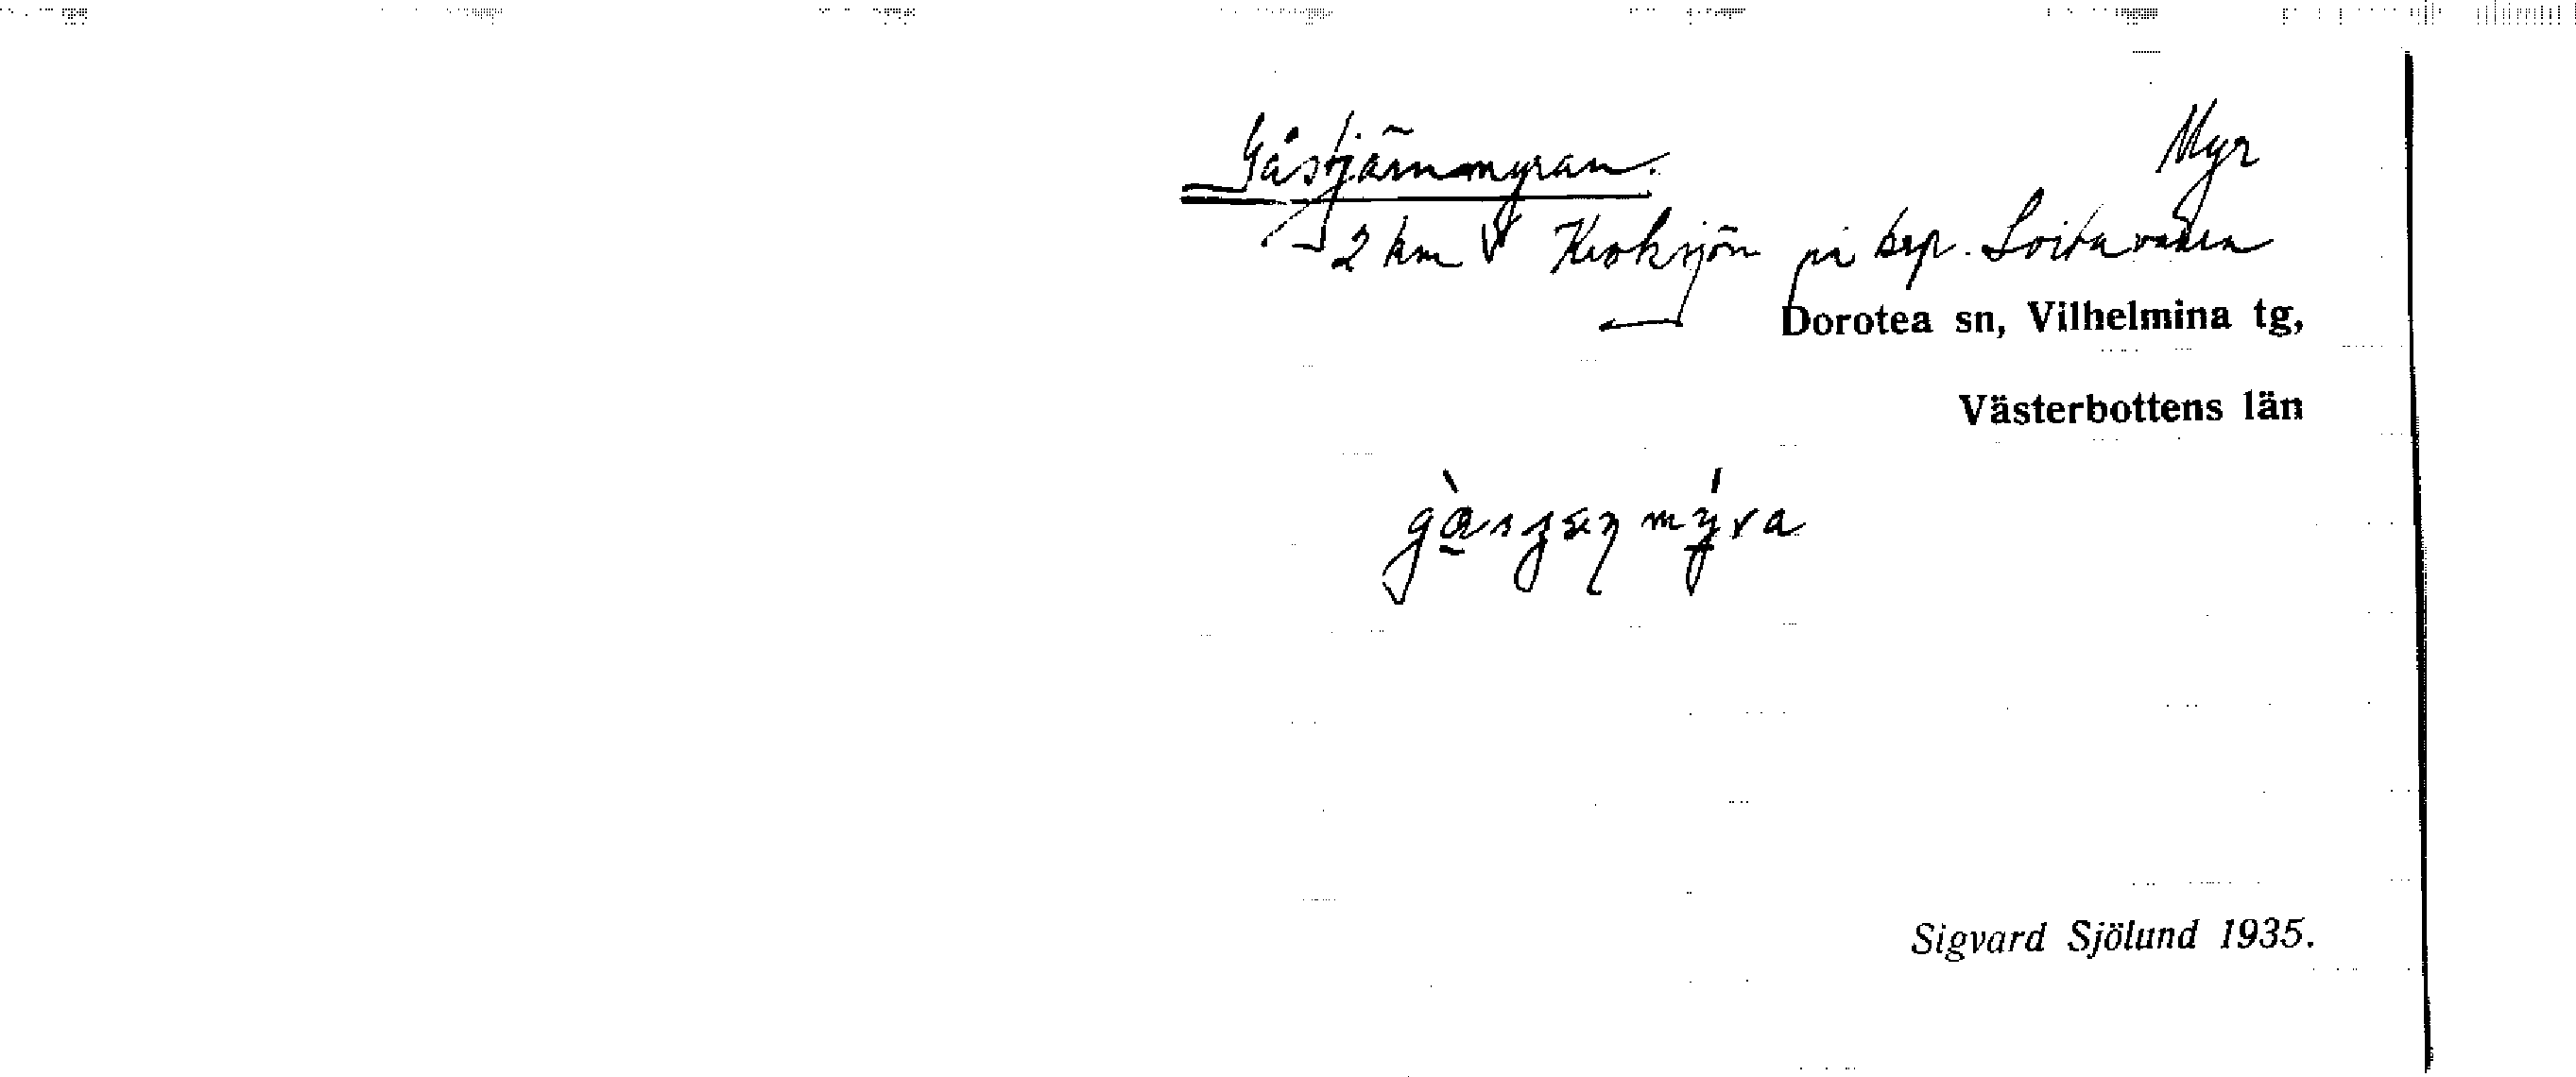 Gåstjärnmyran. Myr
2 km V Kroksjön på krp. Loitavaara
Dorotea sn, Vilhelmina tg,
Västerbottens län
Sigvard Sjölund 1935.